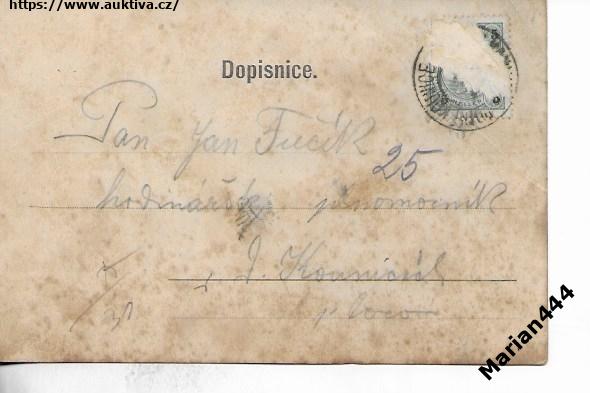 https://www.auktiva.cz/
Dopisnice.
KOUNICE
Pan Jan Fučík
25
hodinářský
D. Kounicích
Marian444